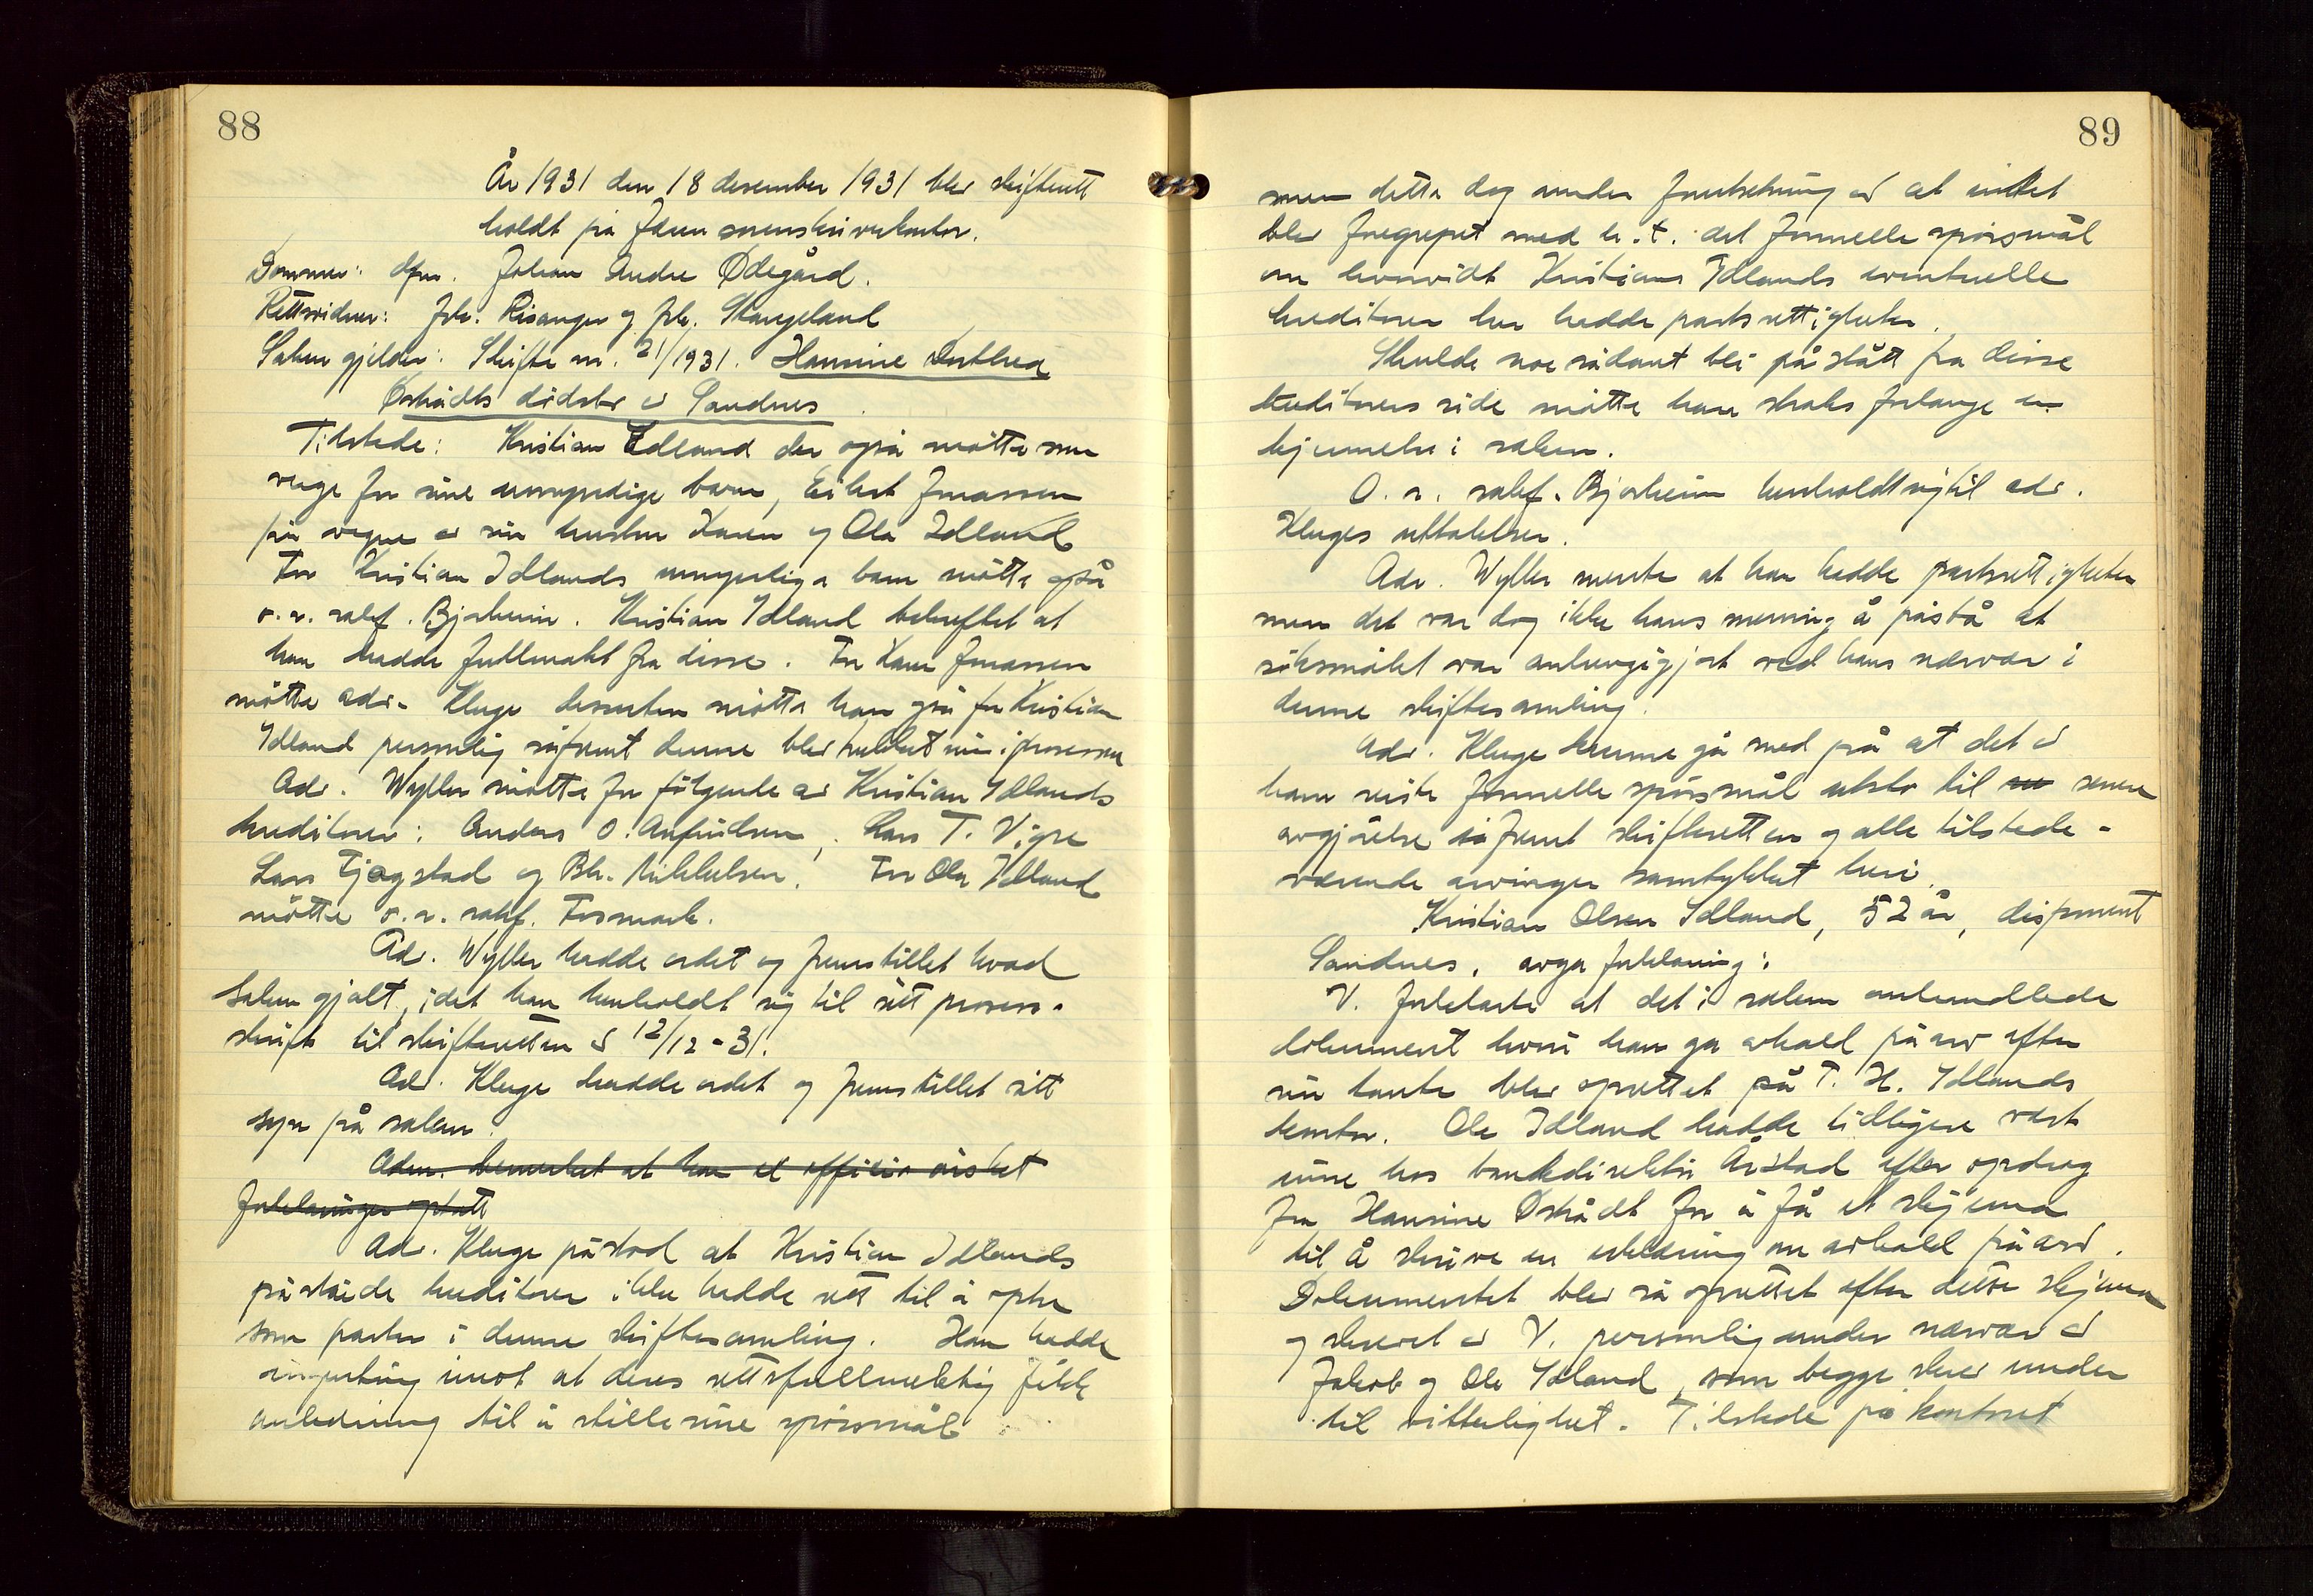 88
År 1931 den 18 desember 1931 blev skifterett
holdt på Jæren sorenskriverkontor.
Dommer: dfm. Johan Andre Ødegård.
Rettsvidner: frk. Risanger og frk. Skangeland
Saken gjelder: Skifte nr. 21/1931. Hansine Dorthea
Østrådts dødsbo av Sandnes
Tilstede: Kristian Idland der også møtte som
verge for sine umyndige barn, Eilert Jonassen
på vegne av sin hustru Karen og Ola Idland
For Kristian Idlands umyndige barn møtte også
o.r. sakf. Bjorheim. Kristian Idland bekreftet at
han hadde fullmakt fra disse. For Karen Jonassen
møtte adv. Kluge dessuten møtte han også for Kristian
Idland personlig såfremt denne blev trukket inn i prosessen
Adv. Wyller møtte for følgende av Kristian Idlands
kreditorer: Anders O. Anfindsen, Lars T. Vigre
Lars Tjøgstad og Bh. Mikkelsen. For Ola Idland
møtte o.r. sakf. Fosmark.
Adv. Wyller hadde ordet og fremstillet hvad
saken gjalt, idet han henholdt sig til sitt prosess-
skrift til skifteretten av 12/12-31.
Adv. Kluge hadde ordet og fremstillet sitt
syn på saken.
Adm. bemerket at han ex officio ønsket
forklaringer optatt
Adv. Kluge påstod at Kristian Idlands
påståede kreditorer ikke hadde rett til å optre
som parter i denne skiftesamling. Han hadde
ingenting imot at deres rettsfullmektig fikk
anledning til å stille sine spørsmål
89
men dette dog under forutsetning av at intet
blev foregrepet med h.t. det formelle spørsmål
om hvorvidt Kristians Idlands eventuelle
kreditorer her hadde partsrettigheter.
Skulde noe sådant bli påstått fra disse
kreditorers side måtte han straks forlange en
kjennelse i saken.
O.r. sakf. Bjorheim henholdt sig til adv.
Kluges uttalelser.
Adv. Wyller mente at han hadde partsrettigheter
men det var dog ikke hans mening å påstå at
søksmålet var anhengiggjort ved hans nærvær i
denne skiftesamling.
Adv. Kluge kunne gå med på at det av
ham reiste formelle spørsmål utstod til senere
avgjørelse såfremt skifteretten og alle tilstede-
værende arvinger samtykket heri.
Kristian Olsen Idland, 52 år, disponent
Sandnes, avga forklaring:
V. forklarte at det i saken omhandlede
dokument hvori han ga avkall på arv efter
sin tante blev oprettet på T. H. Idlands
kontor. Ole Idland hadde tidligere vært
inne hos bankdirektør Årstad efter opdrag
fra Hansine Østrådt for å få et skjema
til å skrive en erklæring om avkall på arv.
Dokumentet blev så oprettet efter dette skjema
og skrevet av V. personlig under nærvær av
Jakob og Ole Idland, som begge skrev under
til vitterlighet. Tilstede på kontoret